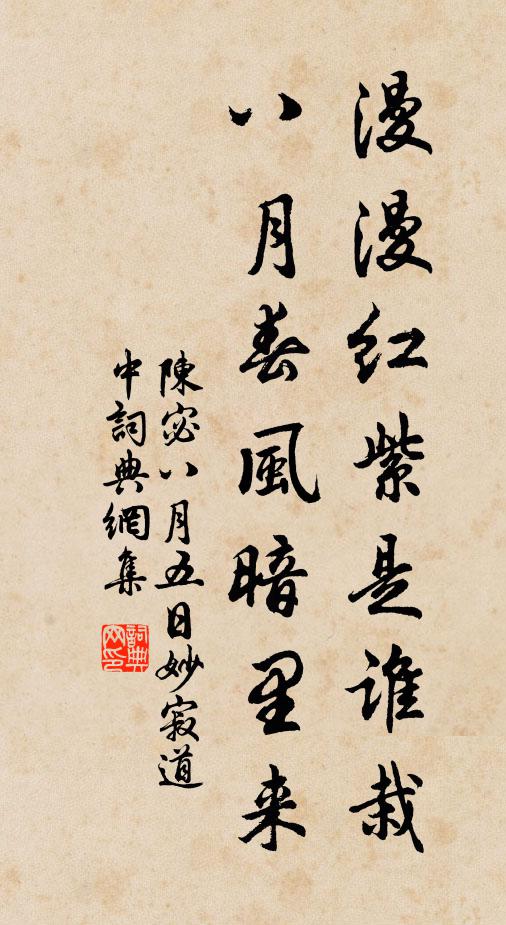 漫漫红紫是谁栽
八月春風暗里来
陳宓八月五日妙寂道
中詞典網集
詞典网印